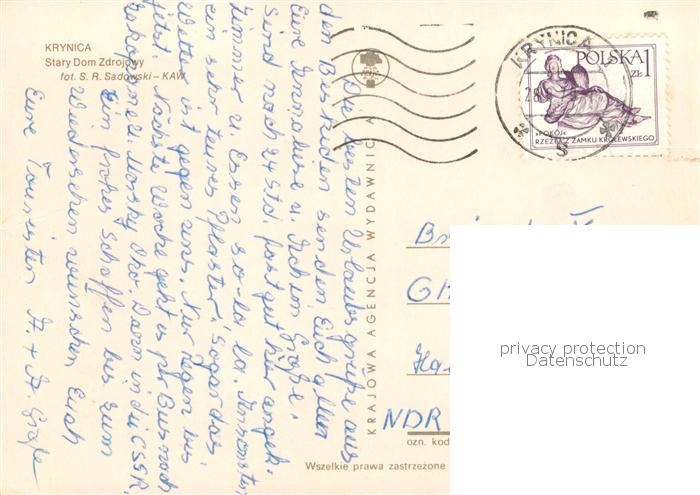 KRYNICA
Stary Dom Zdrojowy
fot. S. R. Sadowski – KAW
KRYNICA
POLSKA 1
ZŁ
»POKÓJ«
RZEŹBA Z ZAMKU KRÓLEWSKIEGO
KRAJOWA AGENCJA WYDAWNICZA
Die besten Urlaubsgrüße aus
den Beskiden senden Euch allen
Eure Annaliese u. Achim Große.
sind nach 24 Std. fast gut hier angek.
Zimmer u. Essen so-la la. Ansonsten
ein sehr teures Pflaster, sogar das
Wetter ist gegen uns. Nur Regen bis
jetzt. Nächste Woche geht es per Bus nach
Zakopane u. Morsky Oko. Dann in die CSSR.
Ein frohes Schaffen bis zum
Wiedersehen wünschen Euch
Eure Touristen A. + A. Große
NDR
ozn. kod
Wszelkie prawa zastrzeżone
privacy protection
Datenschutz